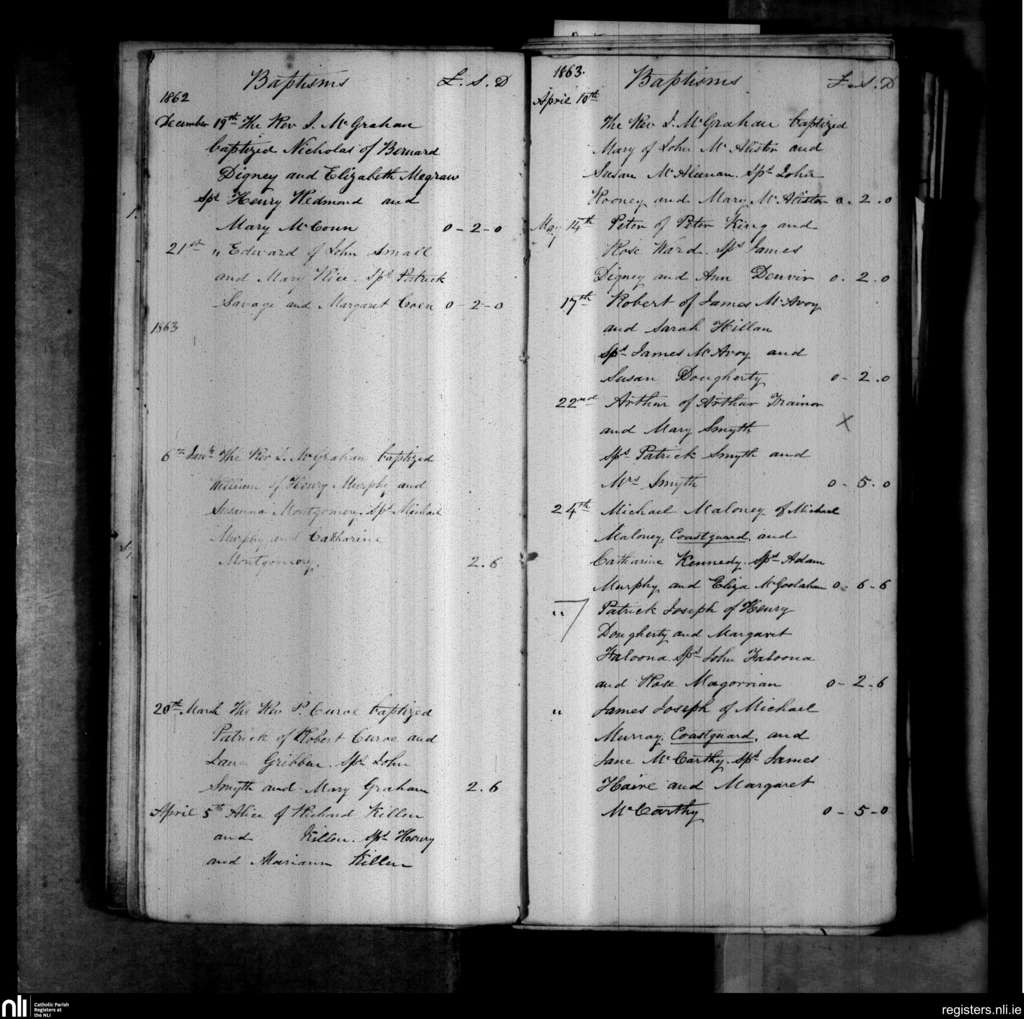 Baptisms £. S. D
1862
December 19th The Rev J. McGrahan
baptized Nicholas of Bernard
Digney and Elizabeth Megraw
Sps Henry Redmond and
Mary McConn 0-2-0
21st " Edward of John Small
and Mary Rice. Sps Patrick
Savage and Margaret Coen 0-2-0
1863
6th Jany The Rev J. McGrahan baptized
William of Henry Murphy and
Susanna Montgomery. Sps Michael
Murphy and Catharine
Montgomery. 2.6
20th March The Rev P. Curoe baptized
Patrick of Robert Curoe and
Jane Gribben. Sps John
Smyth and Mary Graham 2.6
April 5th Alice of Richard Killen
and Killen. Sps Henry
and Mariann Killen
1863. Baptisms £. S. D
April 10th
The Rev J. McGrahan baptized
Mary of John McAlister and
Susan Sps John
Rooney and Mary McAlister 0.2.0
May 14th Peter of Peter King and
Rose Ward. Sps James
Digney and Ann Denvir 0.2.0
17th Robert of James McAvoy
and Sarah Hillan
Sps James McAvoy and
Susan Dougherty 0-2.0
22nd Arthur of Arthur Trainor
and Mary Smyth X
Sps Patrick Smyth and
Mrs Smyth 0-5.0
24th Michael Maloney of Michael
Maloney, Coastguard, and
Catharine Kennedy. Sps Adam
Murphy and Eliza 0-6-6
" Patrick Joseph of Henry
Dougherty and Margaret
Faloona. Sps John Faloona
and Rose Magorrian 0-2-6
" James Joseph of Michael
Murray, Coastguard, and
Jane McCarthy. Sps James
Haire and Margaret
McCarthy 0-5-0
nli Catholic Parish
Registers at
the NLI
registers.nli.ie